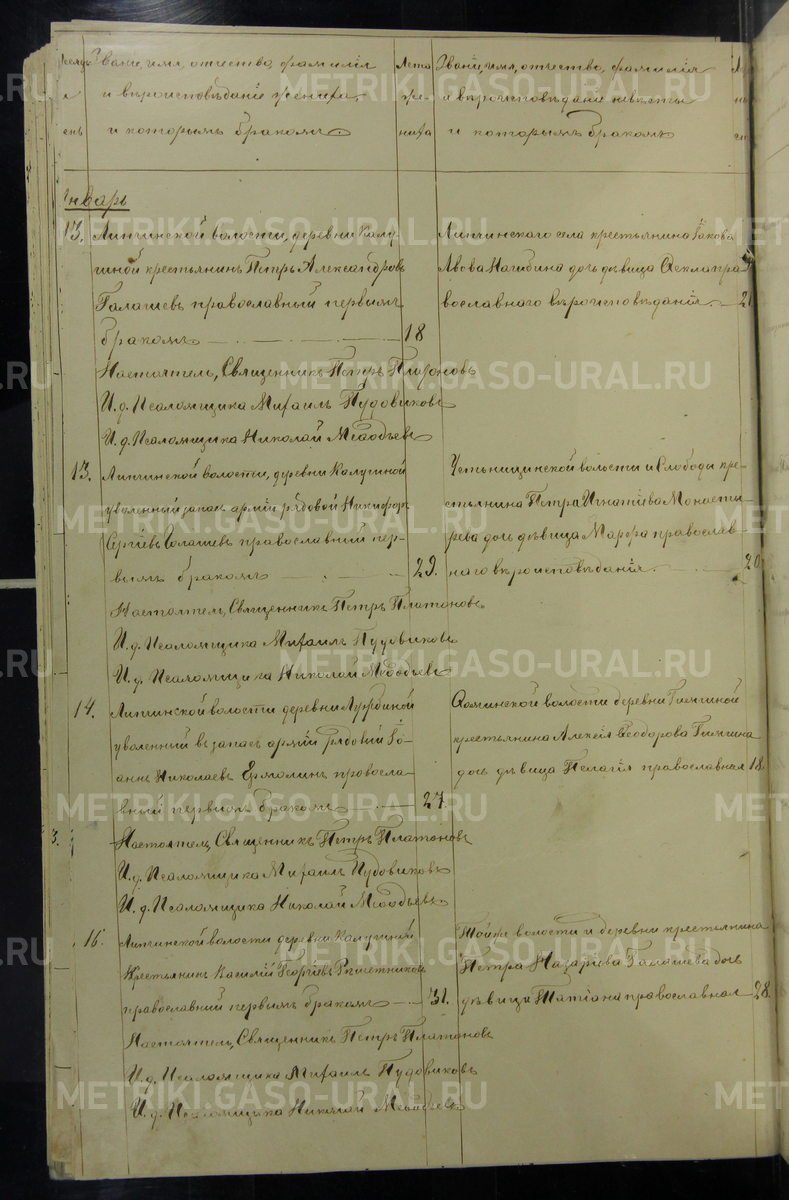 Званіе, имя, отчество, фамилія
и вѣроисповѣданіе жениха,
и которымъ бракомъ.
Лета
же-
ниха
Званіе, имя, отчество, фамилія
и вѣроисповѣданіе невѣсты
и которымъ бракомъ
Январь
13. Липчинской волости, деревни Калу
гиной крестьянинъ Петръ Александровъ
Галашевъ православный первымъ
бракомъ 18
Липчинскаго села крестьянина Іакова
Львова Нагибина дочь дѣвица Ѳекла пра
вославнаго вѣроисповѣданія. 21
Настоятель, Священникъ Петръ Платоновъ
И. д. Псаломщика Михаилъ Пудовиковъ
И. д. Псаломщика Николай Меѳодьевъ
13. Липчинской волости, деревни Калугиной
уволенный запас арміи рядовой Никифоръ
Сергіевъ Галашевъ православный пер-
вымъ бракомъ 29.
Усть-ницинской волости и Слободы кре-
стьянина Петра Игнатіева Монасты
рева дочь дѣвица Марѳа православ-
наго вѣроисповѣданія. 20
Настоятель, Священникъ Петръ Платоновъ
И. д. Псаломщика Михаилъ Пудовиковъ
И. д. Псаломщика Николай Меѳодьевъ
14. Липчинской волости деревни
уволенный въ запасъ арміи рядовой Іо-
аннъ Николаевъ Ермолинъ правосла-
вный первымъ бракомъ 27.
волости деревни
крестьянина Алексія Ѳеодорова
дочь дѣвица Пелагія православная 18.
Настоятель, Священникъ Петръ Платоновъ
И. д. Псаломщика Михаилъ Пудовиковъ
И. д. Псаломщика Николай Меѳодьевъ
16. Липчинской волости деревни Калугиной
Крестьянинъ Василій Георгіевъ Решетниковъ
православный первымъ бракомъ 31.
Той же волости и деревни крестьянина
Петра Назарова Галашева дочь
дѣвица Татіана православная 28.
Настоятель, Священникъ Петръ Платоновъ
И. д. Псаломщика Михаилъ Пудовиковъ
И. д. Псаломщика Николай Меѳодьевъ
METRIKI.GASO-URAL.RU